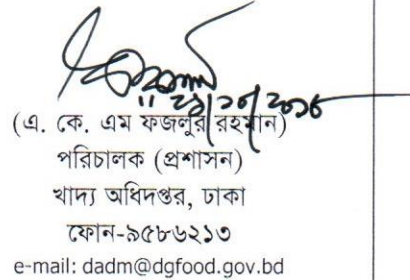 (এ. কে. এম ফজলুর রহমান)
পরিচালক (প্রশাসন)
খাদ্য অধিদপ্তর, ঢাকা
ফোন-৯৫৮৬২১৩
e-mail: dadm@dgfood.gov.bd